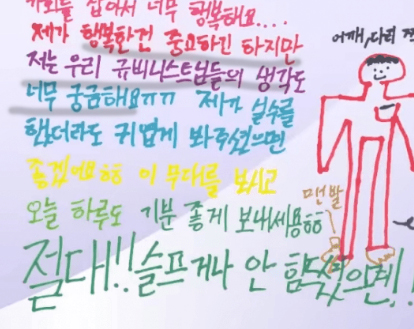 기회를 잡아서 너무 행복해요....
제가 행복한건 중요하긴 하지만
저는 우리 규비니스트님들의 생각도
너무 궁금해요ㅠㅠ 제가 실수를
했더라도 귀엽게 봐주셨으면
좋겠어요ㅎㅎ 이 무대를 보시고
오늘 하루도 기분 좋게 보내세용ㅎㅎ
절대!! 슬프거나 안 힘드셨으면!!
어깨, 다리
맨발